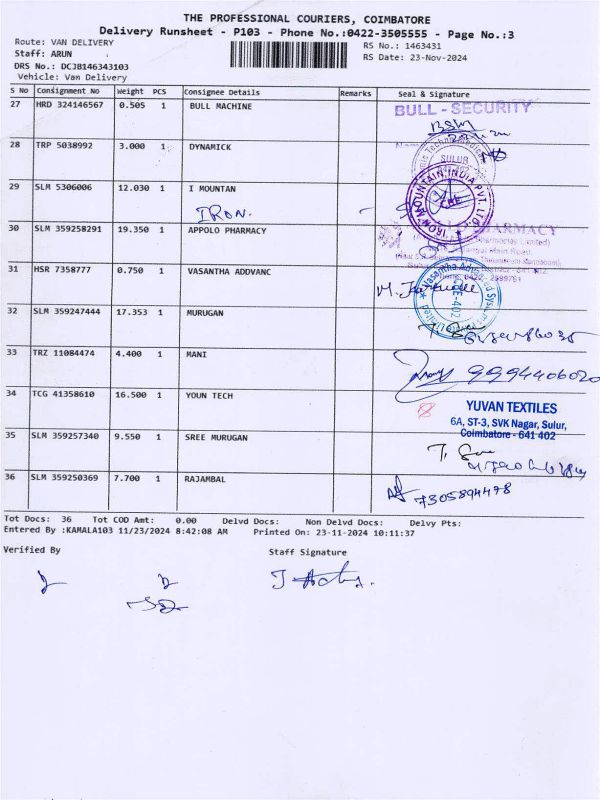 THE PROFESSIONAL COURIERS, COIMBATORE
Delivery Runsheet - P103 - Phone No.:0422-3505555 - Page No.:3
Route: VAN DELIVERY
RS No.: 1463431
Staff: ARUN
RS Date: 23-Nov-2024
DRS No.: DCJB146343103
Vehicle: Van Delivery
S No Consignment No Weight PCS Consignee Details Remarks Seal & Signature
27 HRD 324146567 0.505 1 BULL MACHINE
BULL - SECURITY
28 TRP 5038992 3.000 1 DYNAMICK
SULUR
29 SLM 5306006 12.030 1 I MOUNTAN
IRON.
IRON MOUNTAIN INDIA PVT. LTD.
30 SLM 359258291 19.350 1 APPOLO PHARMACY
PHARMACY
31 HSR 7358777 0.750 1 VASANTHA ADDVANC
32 SLM 359247444 17.353 1 MURUGAN
33 TRZ 11084474 4.400 1 MANI
9994406020
34 TCG 41358610 16.500 1 YOUN TECH
8
YUVAN TEXTILES
6A, ST-3, SVK Nagar, Sulur,
Coimbatore - 641 402
35 SLM 359257340 9.550 1 SREE MURUGAN
36 SLM 359250369 7.700 1 RAJAMBAL
7305894478
Tot Docs: 36 Tot COD Amt: 0.00 Delvd Docs: Non Delvd Docs: Delvy Pts:
Entered By :KAMALA103 11/23/2024 8:42:08 AM Printed On: 23-11-2024 10:11:37
Verified By Staff Signature